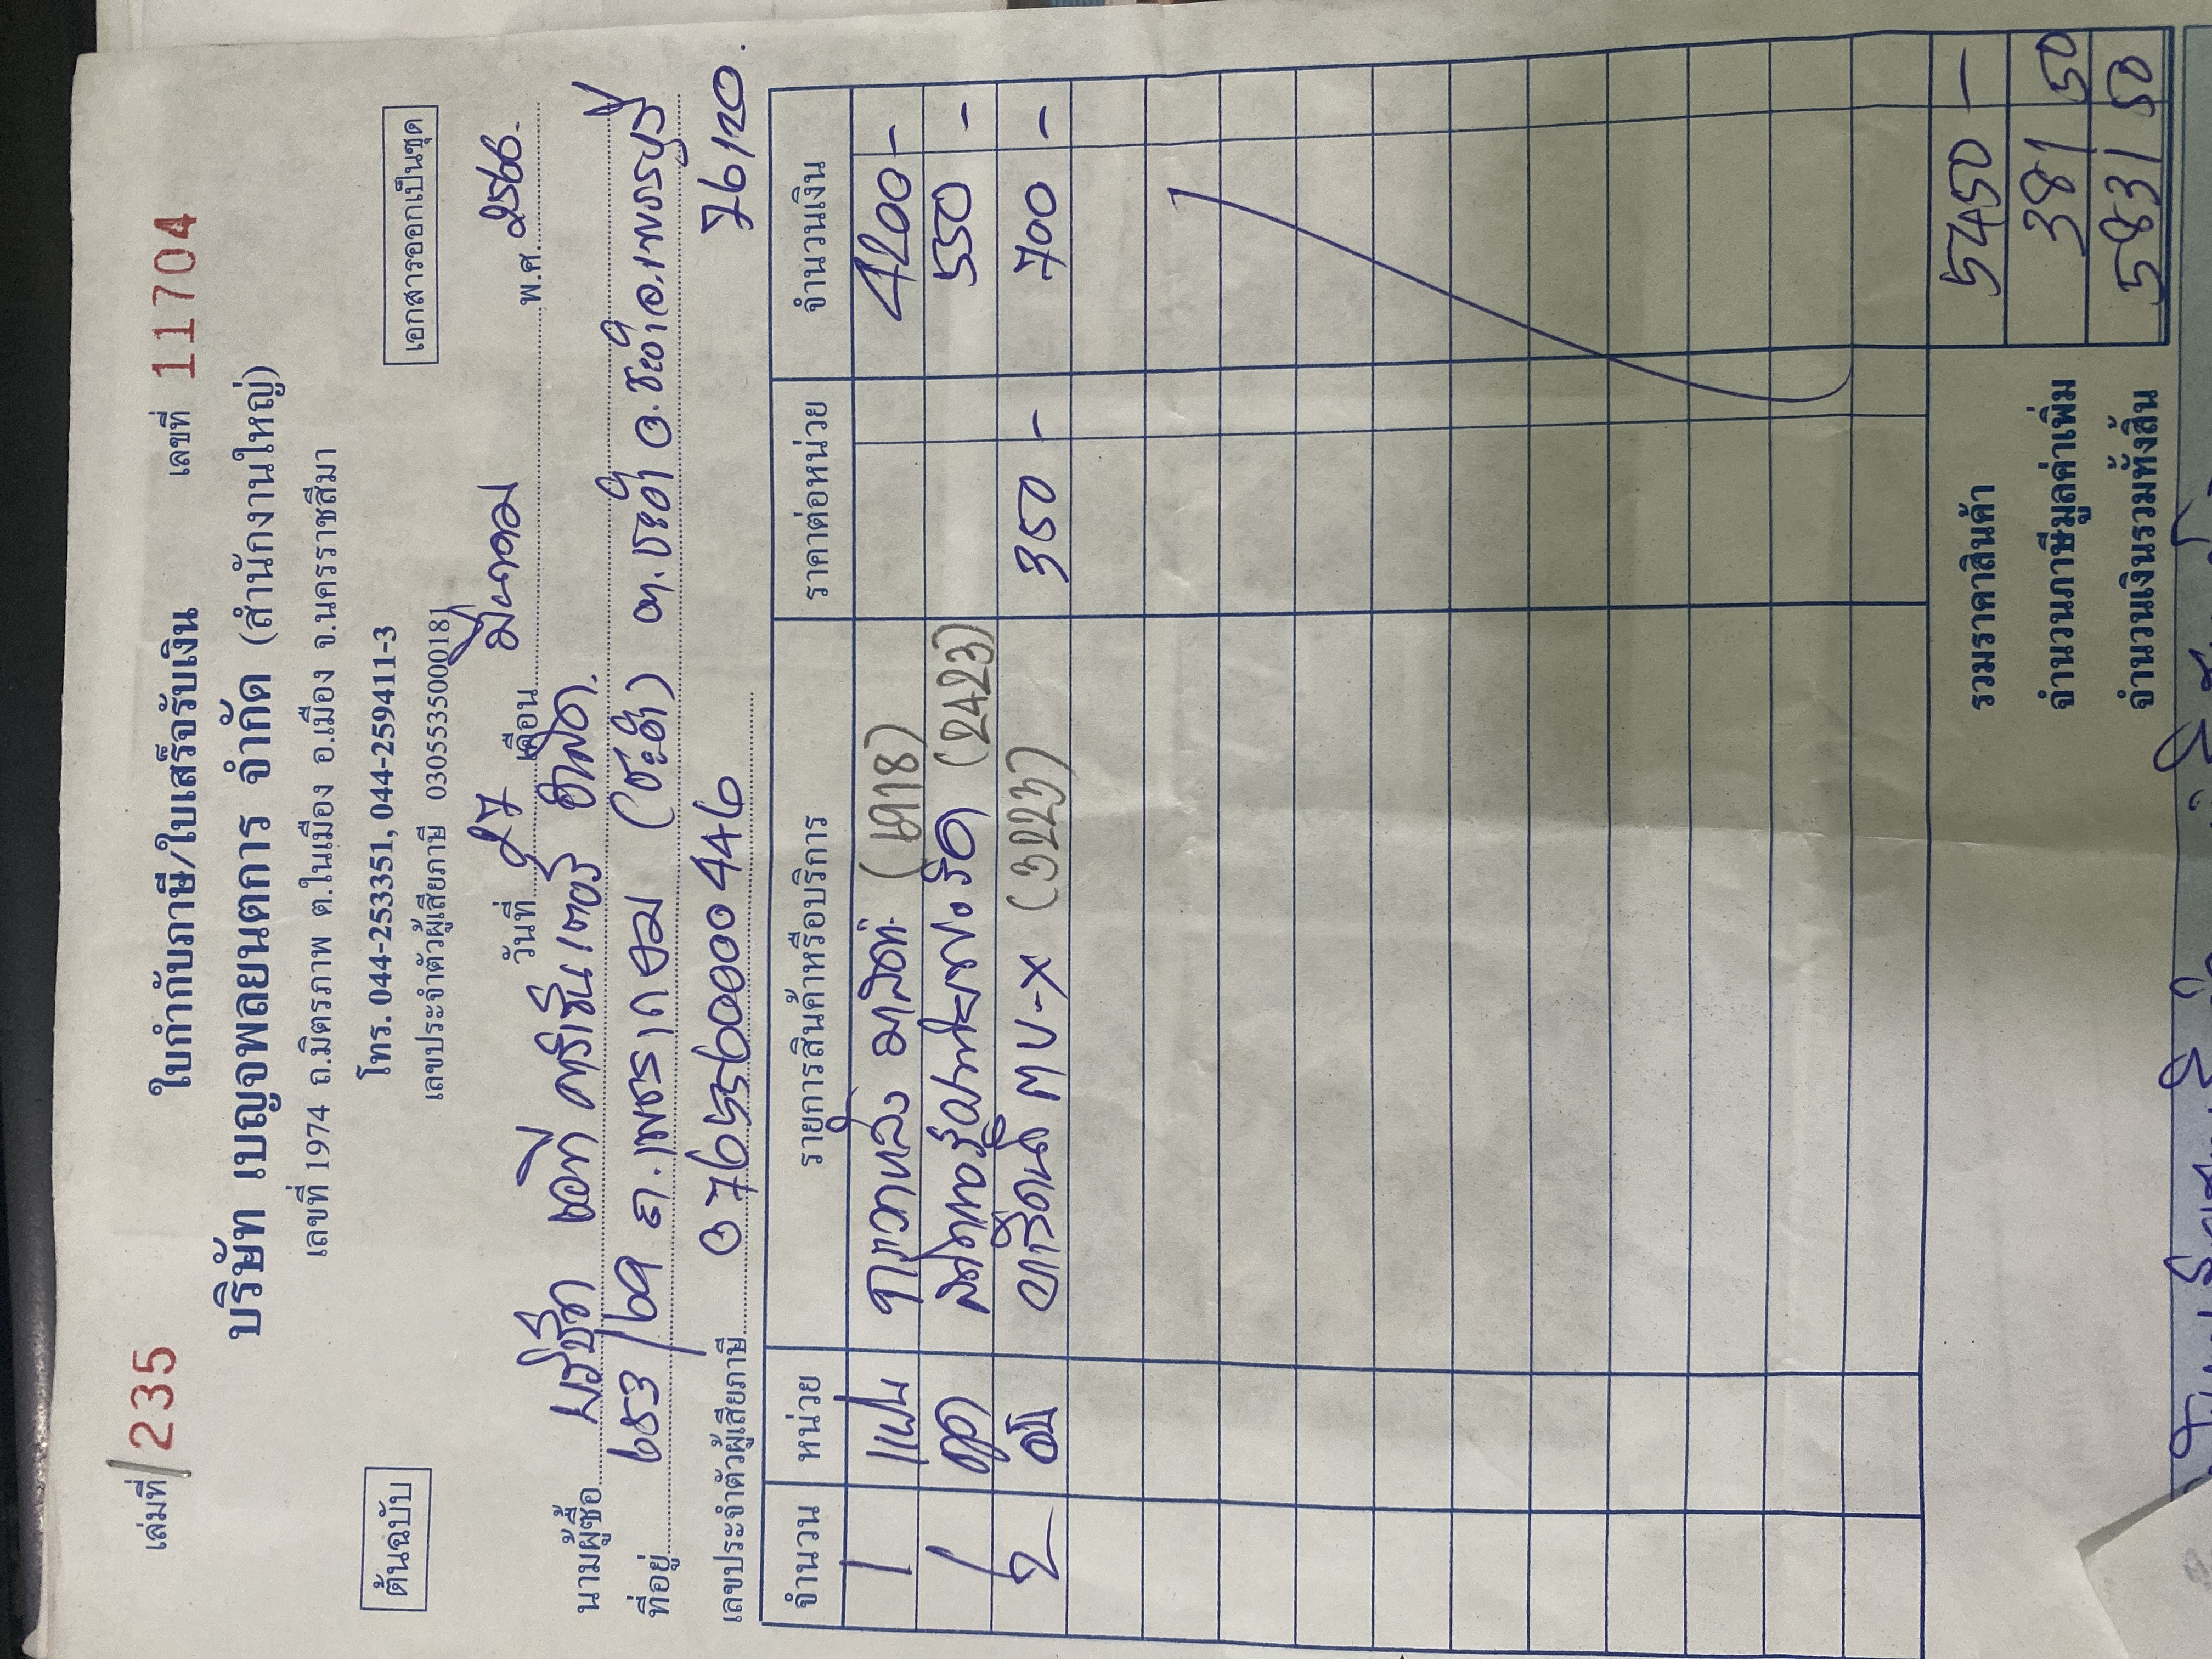 เล่มที่ 235 ใบกำกับภาษี/ใบเสร็จรับเงิน เลขที่ 11704
บริษัท เบญจพลยนตการ จำกัด (สำนักงานใหญ่)
เลขที่ 1974 ถ.มิตรภาพ ต.ในเมือง อ.เมือง จ.นครราชสีมา
ต้นฉบับ โทร. 044-253351, 044-259411-3 เอกสารออกเป็นชุด
เลขประจำตัวผู้เสียภาษี 0305535000181
วันที่ 27 เดือน มีนาคม พ.ศ. 2566
นามผู้ซื้อ บริษัท เอที
ที่อยู่ 683/69 ถ.เพชรเกษม (ชะอำ) ต.ชะอำ อ.ชะอำ จ.เพชรบุรี
เลขประจำตัวผู้เสียภาษี 0765560000446 76120
จำนวน หน่วย รายการสินค้าหรือบริการ ราคาต่อหน่วย จำนวนเงิน
1 แผ่น 4200 -
1 (2423) 550 -
2 MU-X (3223) 350 - 700 -
รวมราคาสินค้า 5450 -
จำนวนภาษีมูลค่าเพิ่ม 381 50
จำนวนเงินรวมทั้งสิ้น 5831 50